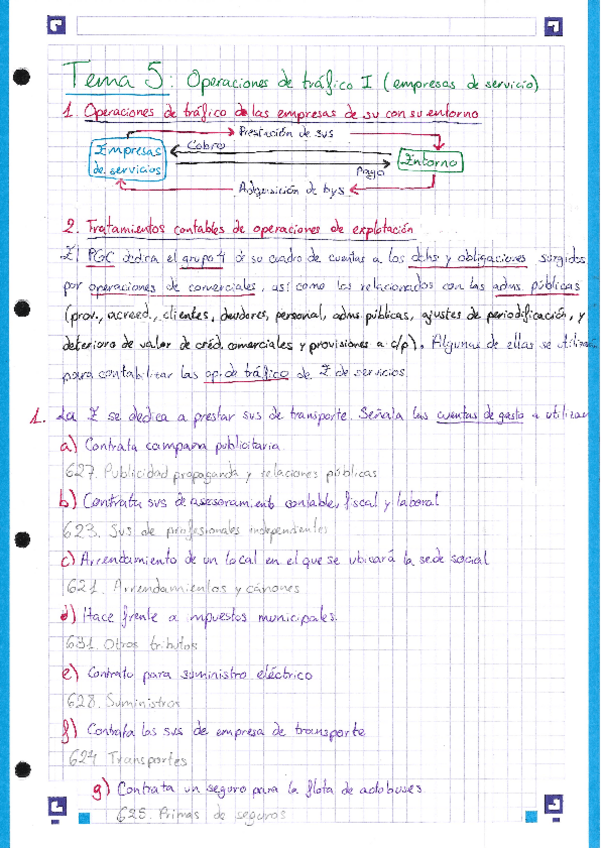 Tema 5: Operaciones de tráfico I (empresas de servicio)
1. Operaciones de tráfico de las empresas de sv con su entorno
Prestación de svs
Empresas de servicios
Cobro
Pago
Entorno
Adquisición de bys
2. Tratamientos contables de operaciones de explotación
El PGC dedica el grupo 4 de su cuadro de cuentas a los dchs y obligaciones surgidos
por operaciones de comerciales, así como los relacionados con las adms. públicas
(prov., acreed., clientes, deudores, personal, adms. públicas, ajustes de periodificación, y
deterioro de valor de créd. comerciales y provisiones a c/p). Algunas de ellas se utilizan
para contabilizar las op. de tráfico de E de servicios.
1. La E se dedica a prestar svs de transporte. Señala las cuentas de gasto a utilizar
a) Contrata campaña publicitaria
627. Publicidad propaganda y relaciones públicas
b) Contrata svs de asesoramiento contable, fiscal y laboral
623. Svs de profesionales independientes
c) Arrendamiento de un local en el que se ubicará la sede social
621. Arrendamientos y cánones
d) Hace frente a impuestos municipales.
631. Otros tributos
e) Contrato para suministro eléctrico
628. Suministros
f) Contrata los svs de empresa de transporte
624 Transportes
g) Contrata un seguro para la flota de autobuses
625. Primas de seguros